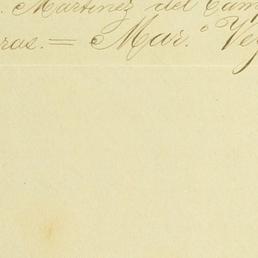 . Martinez del Cam
ras. = Mar.º Ve